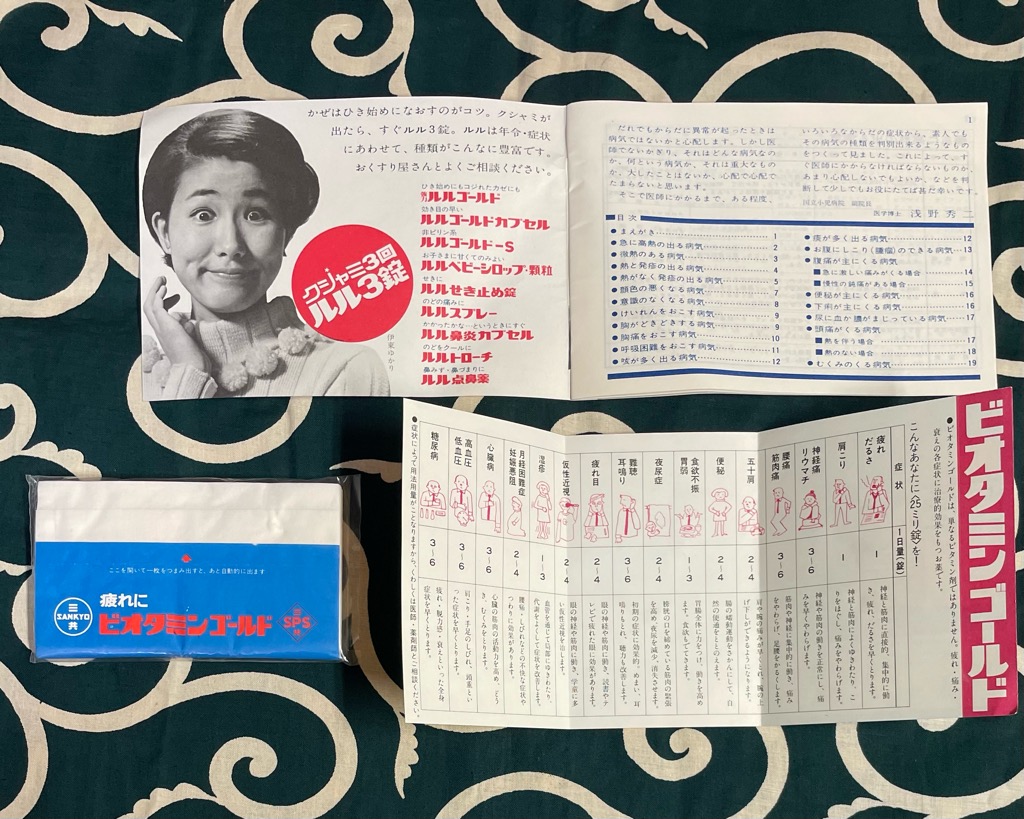 かぜはひき始めになおすのがコツ。クシャミが
出たら、すぐルル3錠。ルルは年令・症状
にあわせて、種類がこんなに豊富です。
おくすり屋さんとよくご相談ください。
ひき始めにもコジれたカゼにも
強力ルルゴールド
効き目の早い
ルルゴールドカプセル
非ピリン系
ルルゴールド-S
お子さまに甘くてのみよい
ルルベビーシロップ・顆粒
せきに
ルルせき止め錠
のどの痛みに
ルルスプレー
かかったかな…というときにすぐ
ルル鼻炎カプセル
のどをクールに
ルルトローチ
鼻みず・鼻づまりに
ルル点鼻薬
クシャミ3回
ルル3錠
伊東ゆかり
1
だれでもからだに異常が起ったときは
病気ではないかと心配します。しかし医
師でないかぎり、それはどんな病気なの
か、何という病気か、それは重大なもの
か、大したことはないか、心配で心配で
たまらないと思います。
そこで医師にかかるまで、ある程度、
いろいろなからだの症状から、素人でも
その病気の種類を判別出来るようなもの
をつくって見ました。これによって、す
ぐ医師にかからなければならないものか、
あまり心配しないでもよいか、などを判
断して少しでもお役にたてば甚だ幸いです。
国立小児病院 副院長
医学博士 浅野秀二
■目次
●まえがき 1
●急に高熱の出る病気 2
●微熱のある病気 3
●熱と発疹の出る病気 4
●熱がなく発疹の出る病気 5
●顔色の悪くなる病気 7
●意識のなくなる病気 8
●けいれんをおこす病気 9
●胸がどきどきする病気 9
●胸痛をおこす病気 10
●呼吸困難をおこす病気 11
●咳が多く出る病気 12
●痰が多く出る病気 12
●お腹にしこり(腫瘤)のできる病気 13
●腹痛が主にくる病気
■急に激しい痛みがくる場合 14
■慢性の鈍痛がある場合 15
●便秘が主にくる病気 16
●下痢が主にくる病気 16
●尿に血か膿がまじっている病気 17
●頭痛がくる病気
■熱を伴う場合 17
■熱のない場合 18
●むくみのくる病気 19
ビオタミンゴールド
●ビオタミンゴールドは、単なるビタミン剤ではありません。疲れ・痛み・
衰えの各症状に治療的効果をもつお薬です。
こんなあなたに〈25ミリ錠〉を!
症状
1日量(錠)
疲れ
だるさ
1
神経と筋肉に直接的、集中的に働
き、疲れ、だるさを早くとります。
肩こり
1
神経と筋肉によくゆきわたり、こ
りをほぐし、痛みをやわらげます。
神経痛
リウマチ
3~6
神経や筋肉の働きを正常にし、痛
みを早くやわらげます。
腰痛
筋肉痛
3~6
筋肉や神経に集中的に働き、痛み
をやわらげ、足腰をかるくします。
五十肩
2~4
肩や腕の痛みが早くとれ、腕の上
げ下しができるようになります。
便秘
2~4
腸の蠕動運動をさかんにして、自
然の便通をととのえます。
食欲不振
胃弱
1~3
胃腸全体に力をつけ、働きを高め
ます。食欲もでてきます。
夜尿症
2~4
膀胱の口を締めている筋肉の緊張
を高め、夜尿を減少、消失させます。
難聴
耳鳴り
3~6
初期の症状に効果的。めまい、耳
鳴りもとれ、聴力も改善します。
疲れ目
2~4
眼の神経や筋肉に働き、読書やテ
レビで疲れた眼に効果があります。
仮性近視
2~4
眼の神経や筋肉に働き、学童に多
い仮性近視を治します。
湿疹
1~3
血液を通じて局部にゆきわたり、
代謝をよくして症状を改善します。
月経困難症
妊娠悪阻
2~4
腰痛・しびれなどの不快な症状や
つわりに効果があります。
心臓病
3~6
心臓の筋肉の活動力を高め、どう
き、むくみをとります。
高血圧
低血圧
3~6
肩こり・手足のしびれ、頭重とい
った症状を早くとります。
糖尿病
3~6
疲れ・脱力感・衰えといった全身
症状を早くとります。
●症状によって用法用量がことなりますから、くわしくは医師・薬剤師とご相談ください。
ここを開いて一枚をつまみ出すと、あと自動的に出ます
三
SANKYO
共
疲れに
ビオタミンゴールド
三
SPS
共